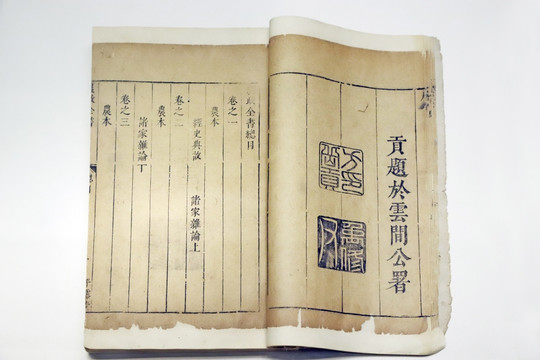 貢題於雲間公署
方印岳貢
禹修
政全書總目
卷之一
農本
經史典故　諸家雜論上
卷之二
農本
諸家雜論下
卷之三
農本